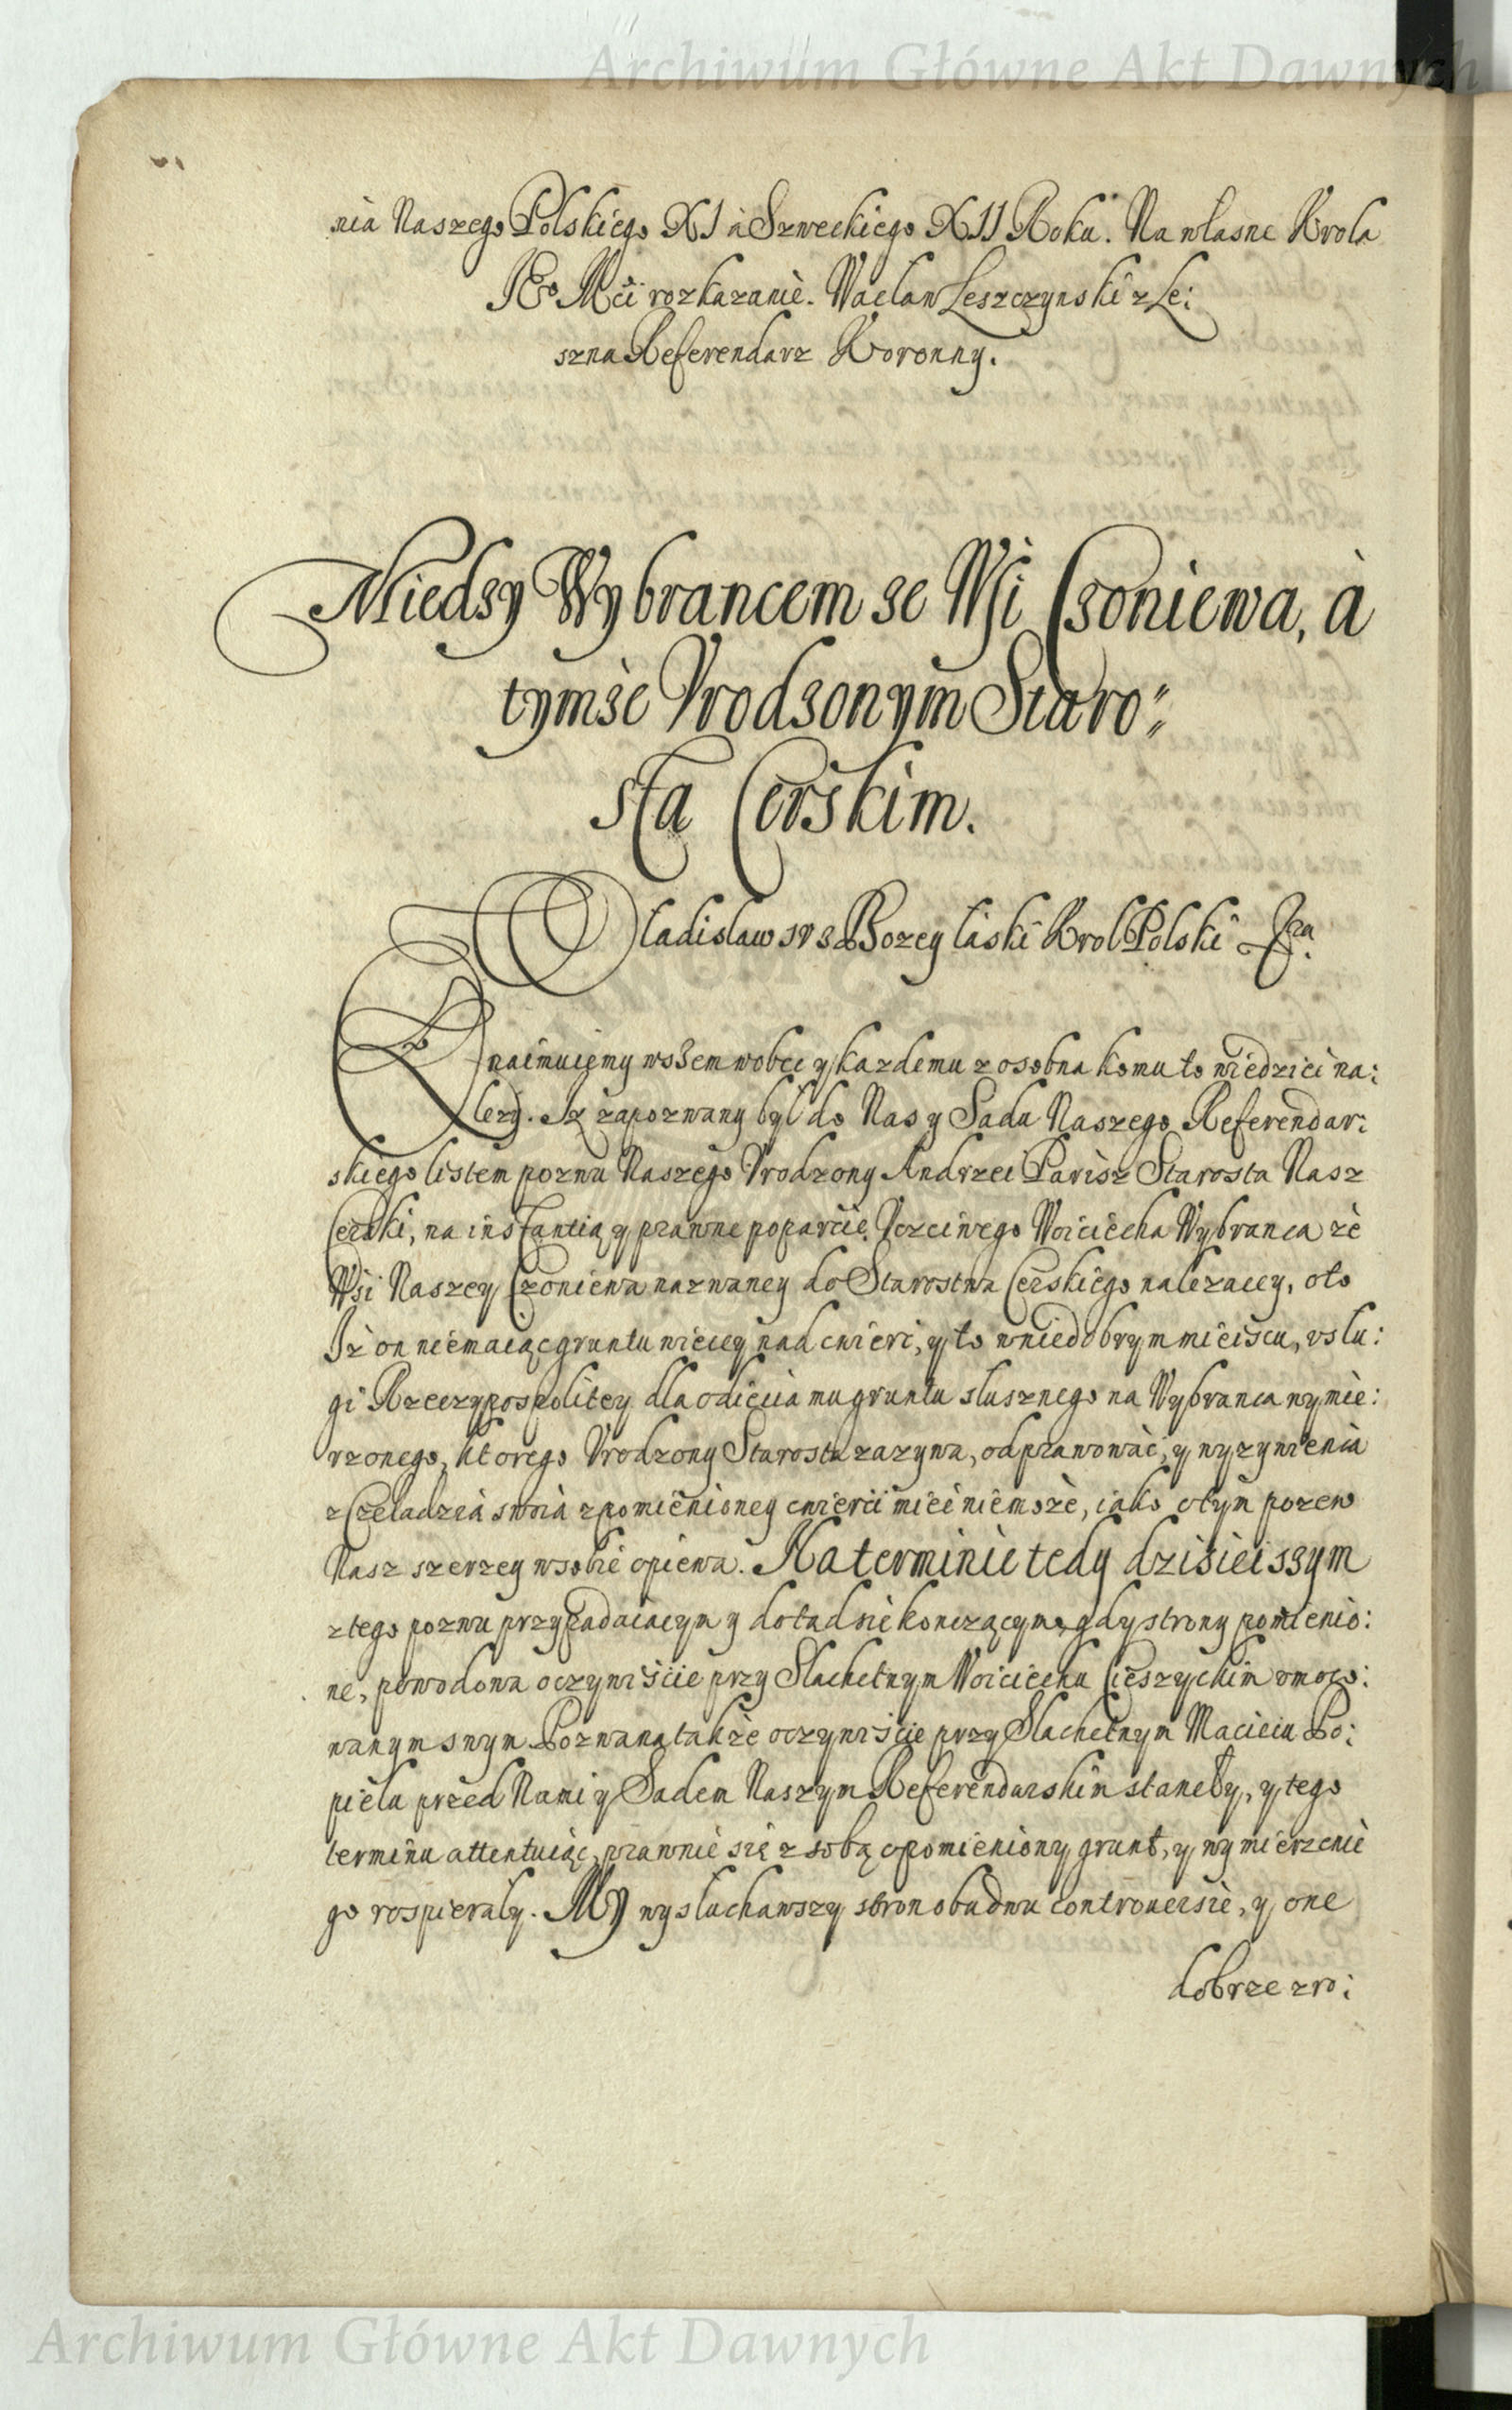 Archiwum Główne Akt Dawnych
nia Naszego Polskiego XI a Szweckiego XII Roku. Na własne Krola
Jeo Mći rozkazanie. Wacław Leszczynski z Le:
szna Referendarz Koronny.
Miedzy Wybrancem ze Wsi Czoniewa, à
tymże Vrodzonym Staro:
stą Czerskim.
Władisław IV z Bozey łaski Krol Polski &ca.
Znaimuięmy wszem wobec y kazdemu z osobna komu to wiedzieć na:
lezy. Iz zapozwany był do Nas y Sadu Naszego Referendar:
skiego listem pozwu Naszego Vrodzony Andrzei Parisz Starosta Nasz
Czerski, na instantią y prawne poparcie Vczciwego Woiciecha Wybranca ze
Wsi Naszey Czoniewa nazwaney do Starostwa Czerskiego nalezacey, oto
Iż on niemaiąc gruntu wiecey nad cwierć, y to wniedobrym mieiscu, vsłu:
gi Rzeczypospolitey dla odięcia mu gruntu słusznego na Wybranca wymie:
rzonego, ktorego Vrodzony Starosta zazywa, odprawować, y wyzywienia
z Czeladzią swoią z pomienioney cwierci mieć niemoże, iako otym pozew
Nasz szerzey wsobie opiewa. Na terminie tedy dzisieiszym
z tego pozwu przypadaiacym y dotad sie konczącym, gdy strony pomienio:
ne, powodowa oczywiście przy Slachetnym Woiciechu Cieszyckim vmoco:
wanym swym Pozwana także oczywiście przy Slachetnym Macieiu Po:
pielu przed Nami y Sadem Naszym Referendarskim staneły, y tego
terminu attentuiąc, prawnie się z sobą o pomieniony grunt, y wymierzenie
go rospierały. My wysłuchawszy stron obudwu controuersie, y one
dobrze zro:
Archiwum Główne Akt Dawnych